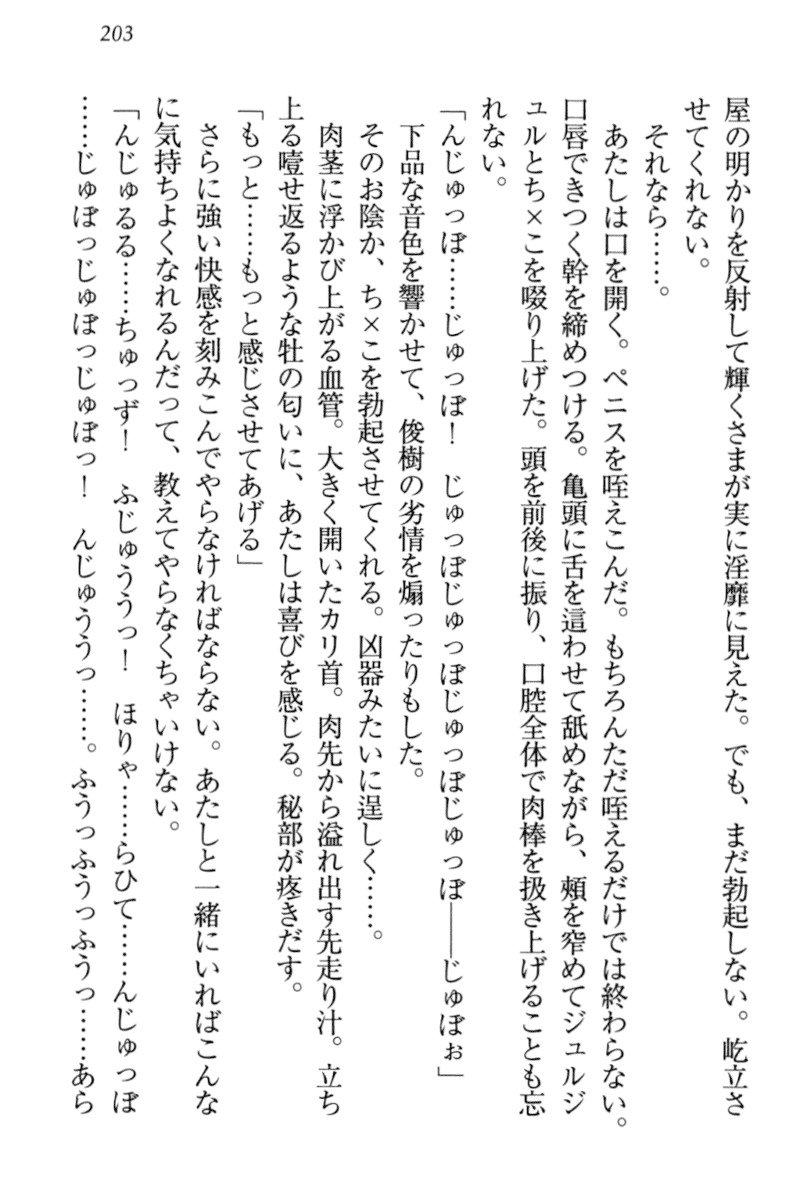 203
屋の明かりを反射して輝くさまが実に淫靡に見えた。でも、まだ勃起しない。屹立さ
せてくれない。
それなら……。
あたしは口を開く。ペニスを咥えこんだ。もちろんただ咥えるだけでは終わらない。
口唇できつく幹を締めつける。亀頭に舌を這わせて舐めながら、頬を窄めてジュルジ
ュルとち×こを啜り上げた。頭を前後に振り、口腔全体で肉棒を扱き上げることも忘
れない。
「んじゅっぽ……じゅっぽ！　じゅっぽじゅっぽじゅっぽ――じゅぽぉ」
下品な音色を響かせて、俊樹の劣情を煽ったりもした。
そのお陰か、ち×こを勃起させてくれる。凶器みたいに逞しく……。
肉茎に浮かび上がる血管。大きく開いたカリ首。肉先から溢れ出す先走り汁。立ち
上る噎せ返るような牡の匂いに、あたしは喜びを感じる。秘部が疼きだす。
「もっと……もっと感じさせてあげる」
さらに強い快感を刻みこんでやらなければならない。あたしと一緒にいればこんな
に気持ちよくなれるんだって、教えてやらなくちゃいけない。
「んじゅるる……ちゅっず！　ふじゅううっ！　ほりゃ……らひて……んじゅっぽ
……じゅぽっじゅぽっじゅぽっ！　んじゅううっ……。ふうっふうっふうっ……あら